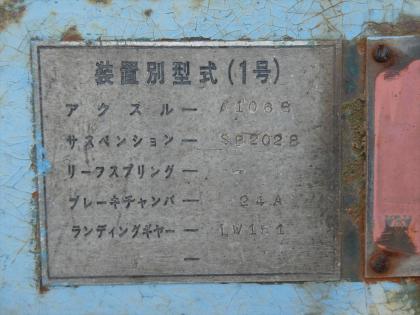 装置別型式(1号)
アクスル— A1068
サスペンション— SP2028
リーフスプリング— -
ブレーキチャンバ— 24A
ランディングギヤー— LW151
—